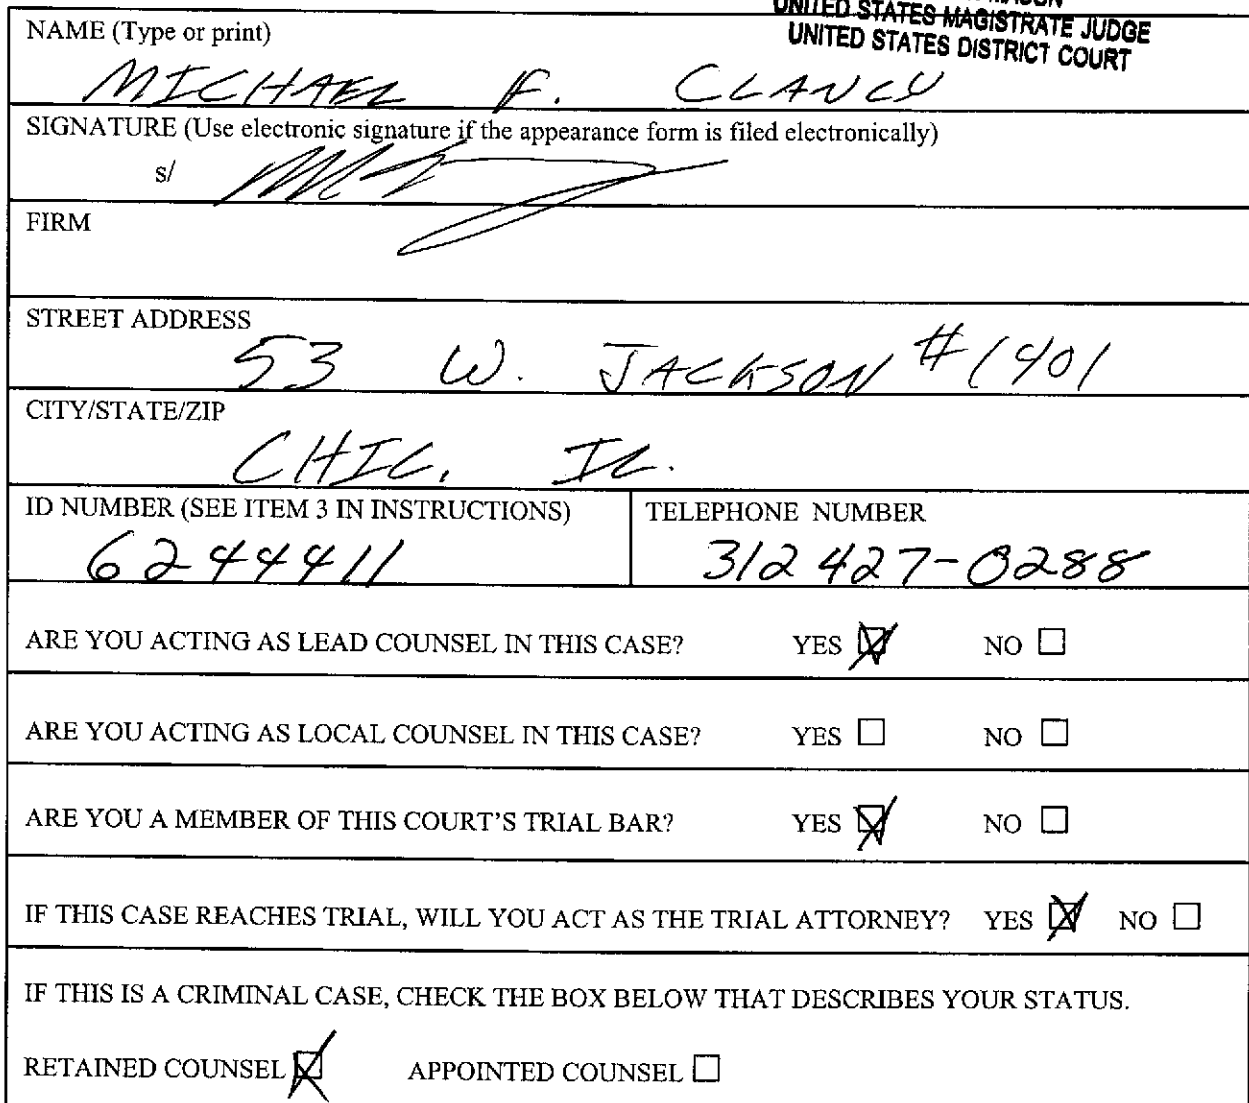 UNITED STATES MAGISTRATE JUDGE
UNITED STATES DISTRICT COURT
NAME (Type or print)
MICHAEL F. CLANCY
SIGNATURE (Use electronic signature if the appearance form is filed electronically)
s/
FIRM
STREET ADDRESS
53 W. JACKSON #1401
CITY/STATE/ZIP
CHIC, IL.
ID NUMBER (SEE ITEM 3 IN INSTRUCTIONS)
6244411
TELEPHONE NUMBER
312 427-0288
ARE YOU ACTING AS LEAD COUNSEL IN THIS CASE? YES ☒ NO ☐
ARE YOU ACTING AS LOCAL COUNSEL IN THIS CASE? YES ☐ NO ☐
ARE YOU A MEMBER OF THIS COURT'S TRIAL BAR? YES ☒ NO ☐
IF THIS CASE REACHES TRIAL, WILL YOU ACT AS THE TRIAL ATTORNEY? YES ☒ NO ☐
IF THIS IS A CRIMINAL CASE, CHECK THE BOX BELOW THAT DESCRIBES YOUR STATUS.
RETAINED COUNSEL ☒ APPOINTED COUNSEL ☐